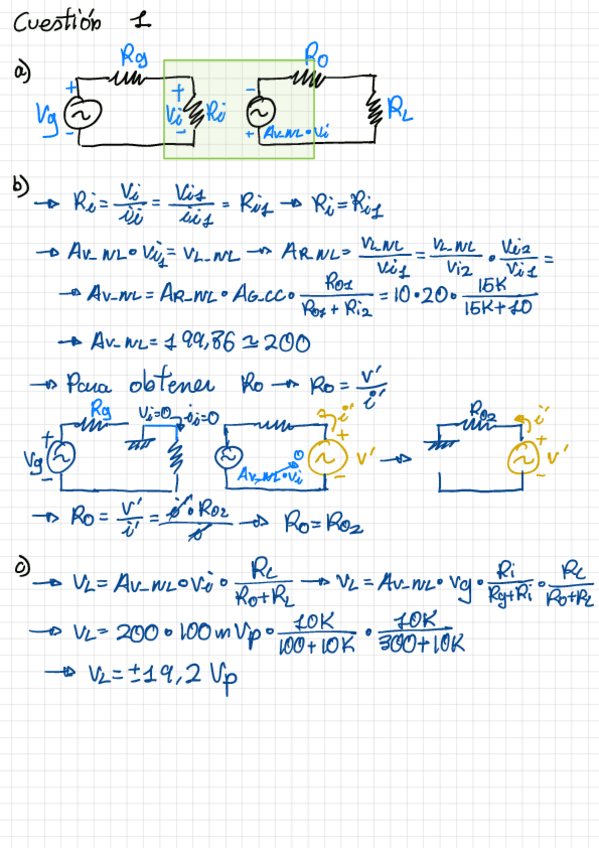 Cuestión 1
a)
Rg Ro
+ + -
Vg Vi Ri RL
- - + Av_NL·Vi
b)
→ Ri = Vi/ii = Vi1/ii1 = Ri1 → Ri = Ri1
→ Av_NL·Vi1 = VL_NL → AR_NL = VL_NL/Vi1 = VL_NL/Vi2 · Vi2/Vi1 =
→ Av_NL = AR_NL · AG_CC · Ro1/(Ro1 + Ri2) = 10·20· 15K/(15K+10)
→ Av_NL = 199,86 ≃ 200
→ Para obtener Ro → Ro = v'/i'
Rg Vi=0 ii=0 i' Ro2 i'
+ 0 + +
Vg Av_NL·Vi v' → v'
- - -
→ Ro = v'/i' = i'·Ro2/i' → Ro = Ro2
c)
→ VL = Av_NL·Vi · RL/(Ro+RL) → VL = Av_NL·Vg · Ri/(Rg+Ri) · RL/(Ro+RL)
→ VL = 200·100mVp · 10K/(100+10K) · 10K/(300+10K)
→ VL = ±19,2 Vp